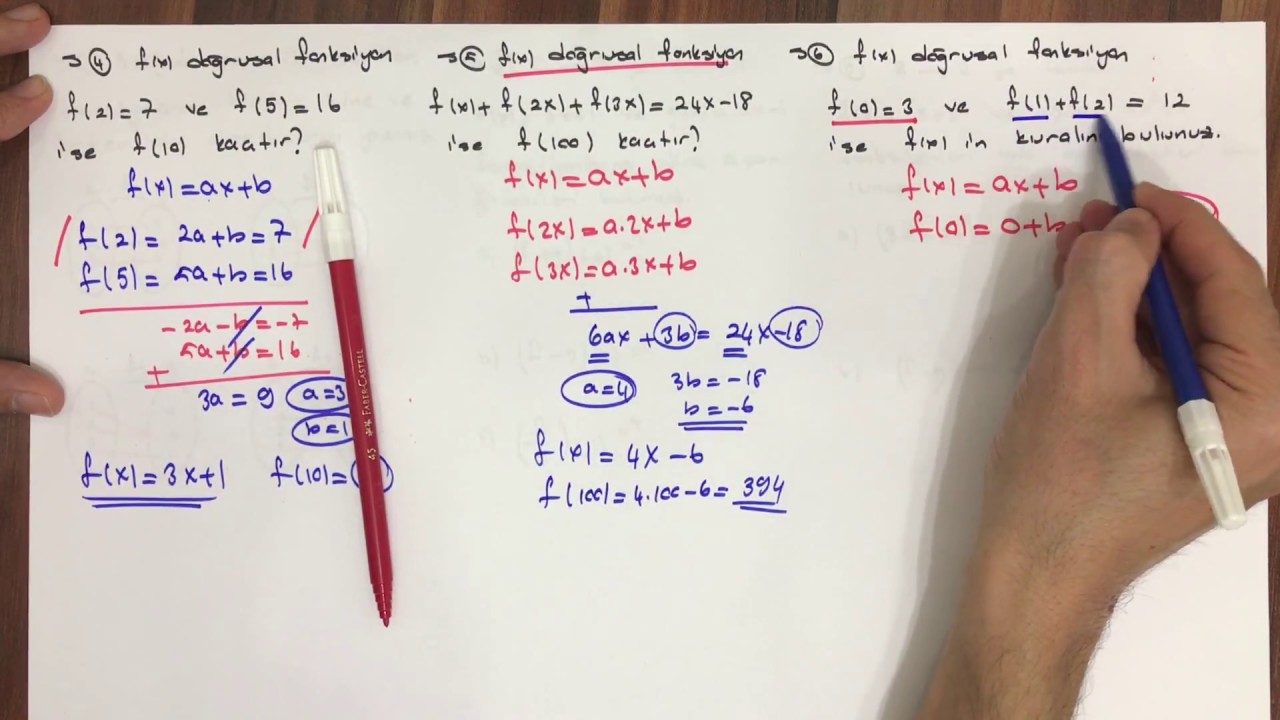 → ④ f(x) doğrusal fonksiyon
f(2)=7 ve f(5)=16
ise f(10) kaçtır?
f(x)=ax+b
f(2)= 2a+b=7
f(5)= 5a+b=16
-2a-b=-7
5a+b=16
+
3a=9 a=3
b=1
f(x)=3x+1 f(10)=
→ ⑤ f(x) doğrusal fonksiyon
f(x)+f(2x)+f(3x)=24x-18
ise f(100) kaçtır?
f(x)=ax+b
f(2x)=a.2x+b
f(3x)=a.3x+b
+
6ax+3b=24x-18
a=4 3b=-18
b=-6
f(x)=4x-6
f(100)=4.100-6=394
→ ⑥ f(x) doğrusal fonksiyon
f(0)=3 ve f(1)+f(2)=12
ise f(x) in kuralın bulunuz.
f(x)=ax+b
f(0)=0+b
FABER-CASTELL
45